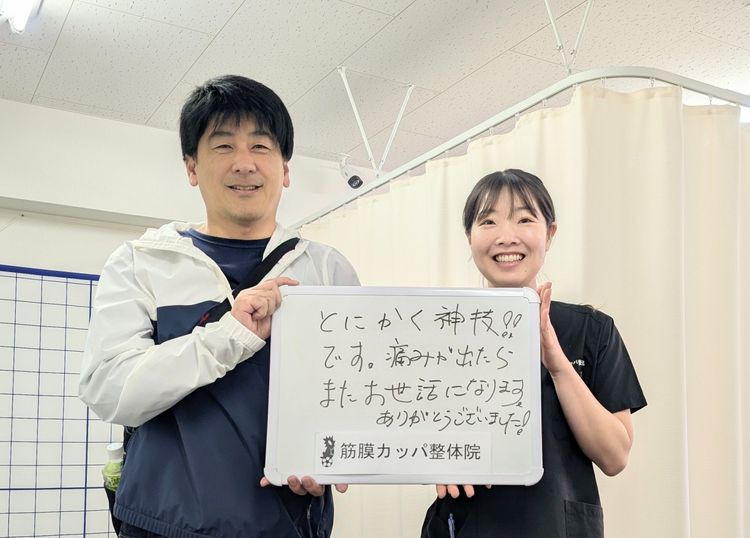 とにかく神技!!
です。痛みが出たら
またお世話になります。
ありがとうございました!
筋膜カッパ整体院